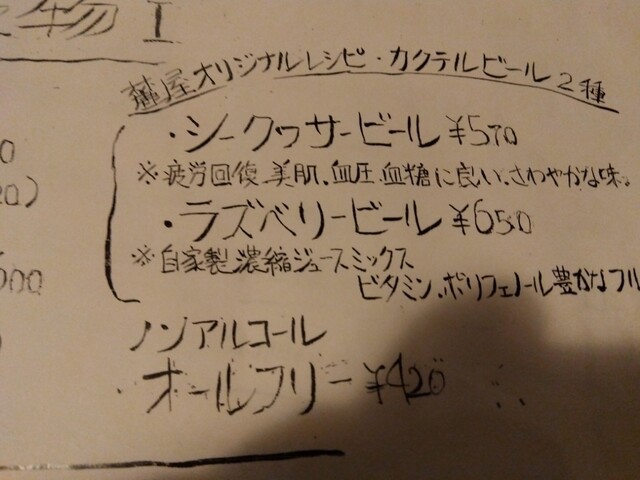 物 I
屋オリジナルレシピ・カクテルビール2種
・シークヮサービール ¥570
※疲労回復、美肌、血圧、血糖に良い、さわやかな味。
・ラズベリービール ¥650
※自家製、濃縮ジュースミックス
ビタミン、ポリフェノール豊かなフル
ノンアルコール
・オールフリー ¥420